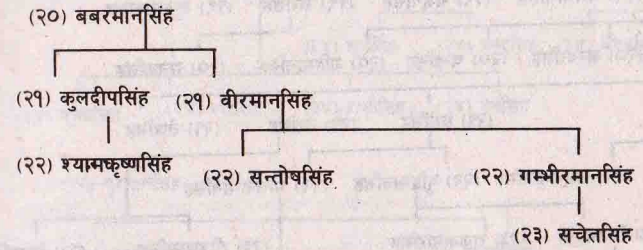 (२०) बबरमानसिंह
(२१) कुलदीपसिंह (२१) वीरमानसिंह
(२२) श्यामकृष्णसिंह (२२) सन्तोषसिंह (२२) गम्भीरमानसिंह
(२३) सचेतसिंह